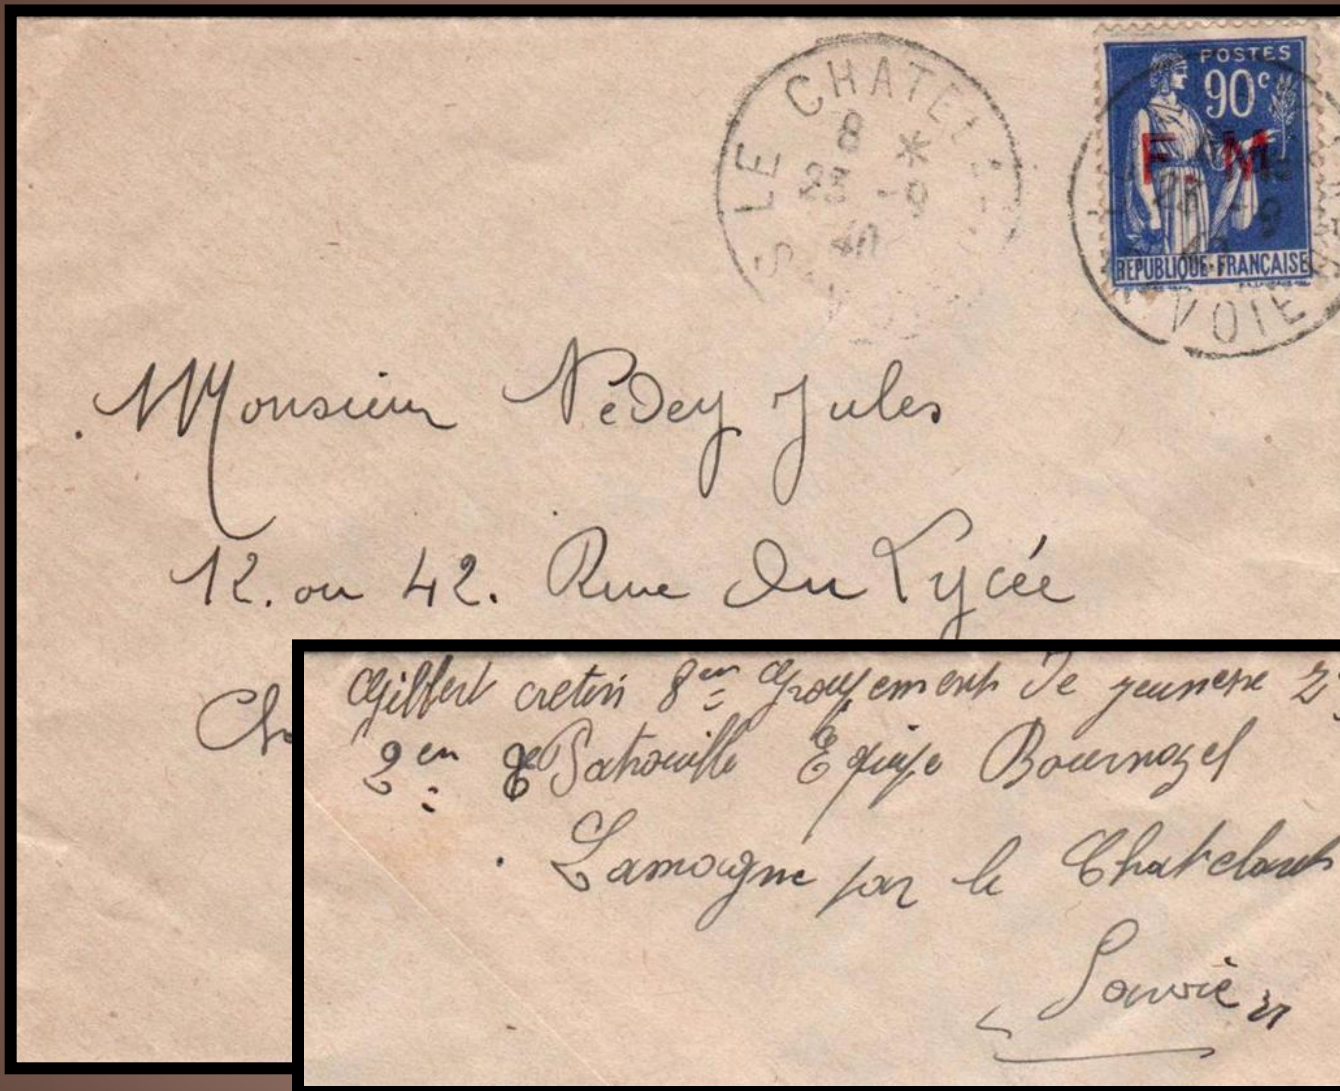 LE CHATEL
8 *
23 -9
40
POSTES
90c
F. M
23 - 9
RÉPUBLIQUE FRANÇAISE
VOIE
Monsieur Pedey Jules
12. ou 42. Rue Du Lycée
Ch
Gilbert cretin 8em Groupement de jeunesse 2
2em Patrouille Equipe Bournazel
Lamagne par le Chatelard
Savoie